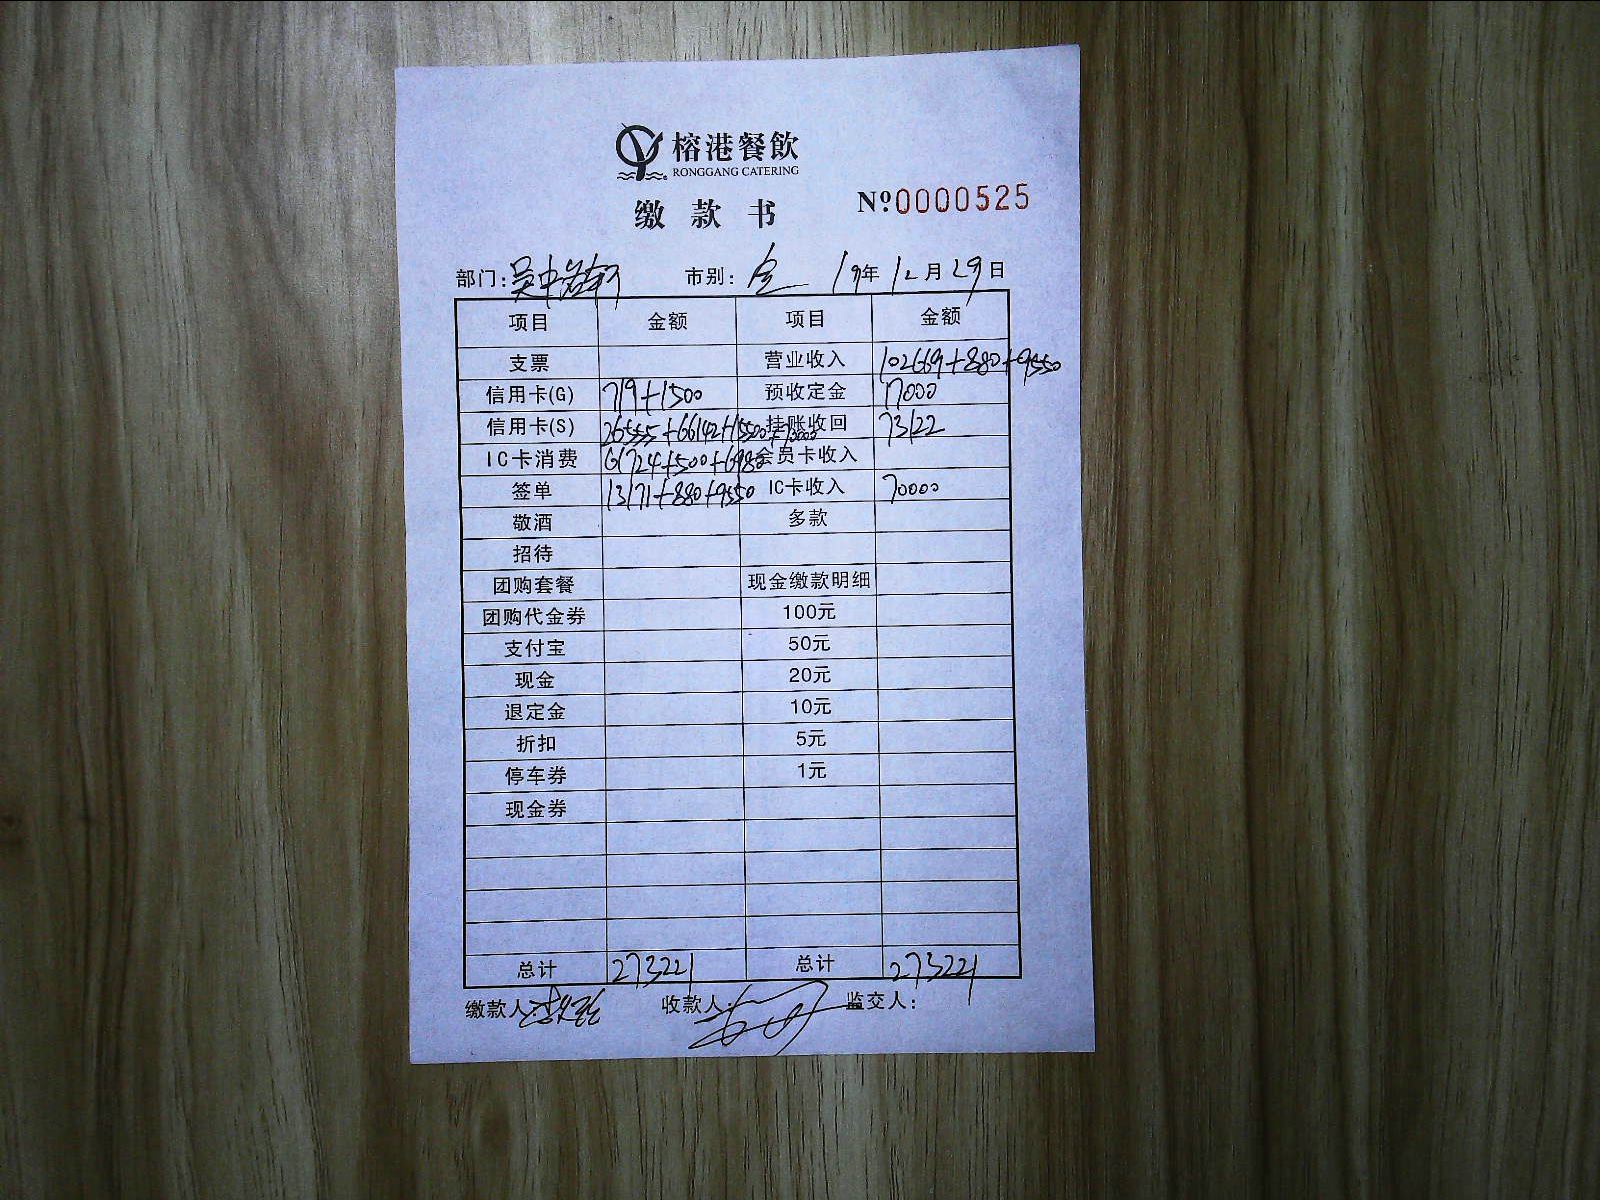 榕港餐飲
RONGGANG CATERING
缴款书 №0000525
部门: 吴中 市别: 全 19年12月29日
项目 金额 项目 金额
支票 营业收入 102669+880+9550
信用卡(G) 719+1500 预收定金 17000
信用卡(S) 26555+66142+15500+70000 挂账收回 73122
IC卡消费 61724+500+6980 会员卡收入
签单 13171+880+9550 IC卡收入 70000
敬酒 多款
招待
团购套餐 现金缴款明细
团购代金券 100元
支付宝 50元
现金 20元
退定金 10元
折扣 5元
停车券 1元
现金券
总计 273221 总计 273221
缴款人: 收款人: 监交人: